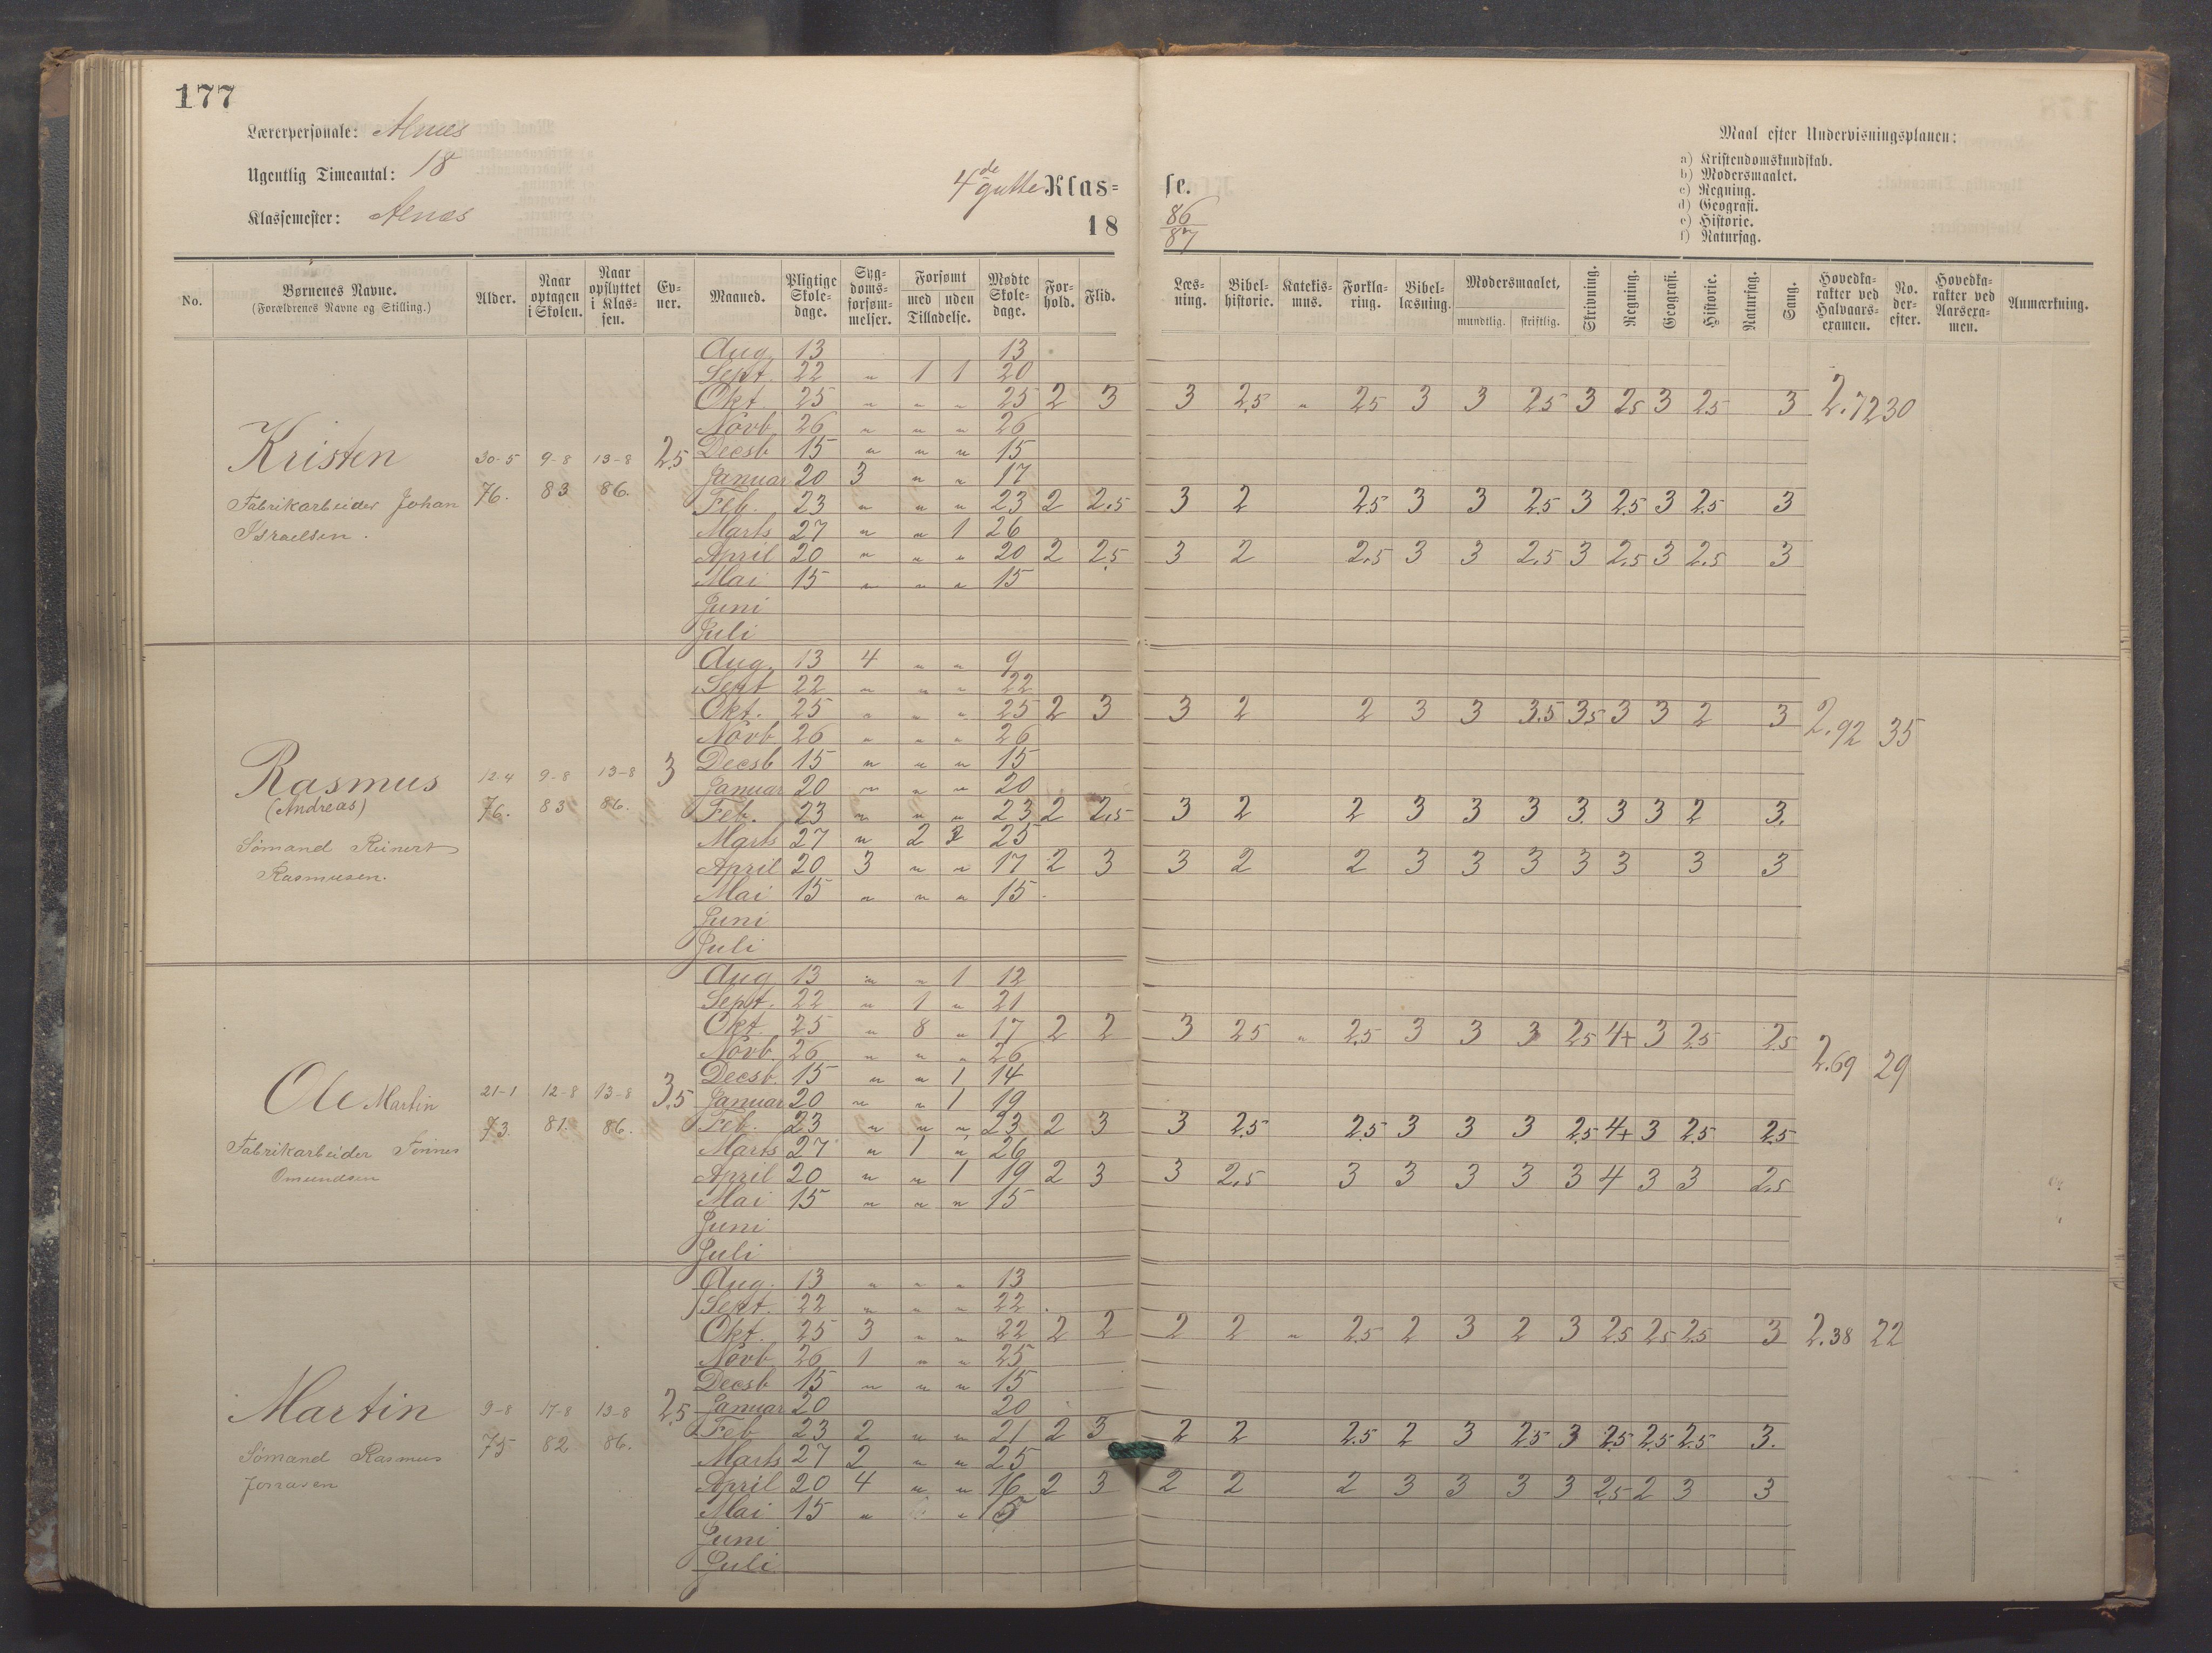 177
Lærerpersonale: Alnæs
Ugentlig Timeantal: 18
Klassemester: Alnæs
4de gutte Klas=
18
se.
86
87
Maal efter Undervisningsplanen:
a) Kristendomskundskab.
b) Modersmaalet.
c) Regning.
d) Geografi.
e) Historie.
f) Naturfag.
No. Børnenes Navne. (Forældrenes Navne og Stilling.) Alder. Naar optagen i Skolen. Naar opflyttet i Klassen. Evner. Maaned. Pligtige Skoledage. Sygdomsforsømmelser. Forsømt med uden Tilladelse. Mødte Skoledage. Forhold. Flid. Læsning. Bibelhistorie. Katekismus. Forklaring. Bibellæsning. Modersmaalet, mundtlig. skriftlig. Skrivning. Regning. Geografi. Historie. Naturfag. Sang. Hovedkarakter ved Halvaarsexamen. No. derefter. Hovedkarakter ved Aarsexamen. Anmærkning.
Kristen
Fabrikarbeider Johan
Israelsen.
30-5 9-8 13-8 2.5
76. 83 86.
Aug. 13 13
Sept. 22 " 1 1 20
Okt. 25 " " " 25 2 3 3 2.5 " 2.5 3 3 2.5 3 2.5 3 2.5 3 2.72 30
Novb. 26 " " " 26
Decsb 15 " " " 15
Januar 20 3 " " 17
Feb. 23 " " " 23 2 2.5 3 2 2.5 3 3 2.5 3 2.5 3 2.5 3
Marts 27 " " 1 26
April 20 " " " 20 2 2.5 3 2 2.5 3 3 2.5 3 2.5 3 2.5 3
Mai 15 " " " 15
Juni
Juli
Rasmus
(Andreas)
Sømand Reinert
Rasmusen.
12-4 9-8 13-8 3
76. 83 86.
Aug. 13 4 " " 9
Sept 22 " " " 22
Okt. 25 " " " 25 2 3 3 2 2 3 3 3.5 3.5 3 3 2 3 2.92 35
Novb 26 " " " 26
Decsb 15 " " " 15
Januar 20 " " " 20
Feb. 23 " " " 23 2 2.5 3 2 2 3 3 3 3. 3 3 2 3.
Marts 27 " 2 25
April 20 3 " " 17 2 3 3 2 2 3 3 3 3 3 3 3
Mai 15 " " " 15
Juni
Juli
Ole Martin
Fabrikarbeider Tønnes
Omundsen
21-1 12-8 13-8 3.5
73. 81. 86.
Aug 13 " " 1 12
Sept. 22 " 1 " 21
Okt. 25 " 8 " 17 2 2 3 2.5 " 2.5 3 3 3 2.5 4+ 3 2.5 2.5 2.69 29
Novb. 26 " " " 26
Decsb. 15 " " 1 14
Januar 20 " " 1 19
Feb. 23 " " " 23 2 3 3 2.5 2.5 3 3 3 2.5 4+ 3 2.5 2.5
Marts 27 " 1 " 26
April 20 " " 1 19 2 3 3 2.5 3 3 3 3 3 4 3 3 2.5
Mai 15 " " " 15
Juni
Juli
Martin
Sømand Rasmus
Jonasen
9-8 17-8 13-8 2.5
75 82 86.
Aug. 13 " " " 13
Sept. 22 " " " 22
Okt. 25 3 " " 22 2 2 2 2 " 2.5 2 3 2 3 2.5 2.5 2.5 3 2.38 22
Novb 26 1 " " 25
Decsb 15 " " " 15
Januar 20 20
Feb 23 2 " " 21 2 3 2 2 2.5 2 3 2.5 3 2.5 2.5 2.5 3.
Marts 27 2 " " 25
April 20 4 " " 16 2 3 2 2 2 3 3 3 3 2.5 2 3 3
Mai 15 " " 15
Juni
Juli